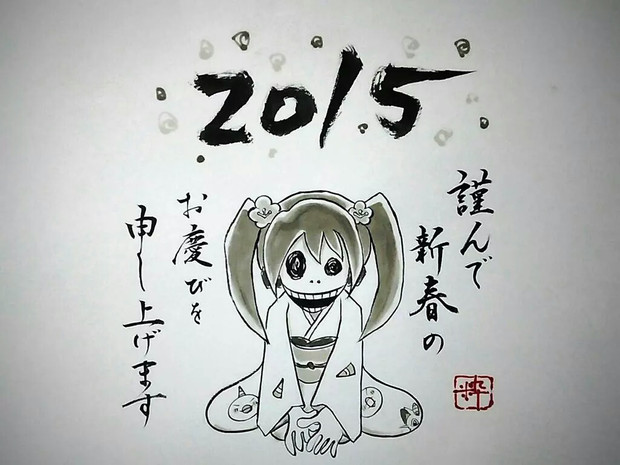 2015
謹んで
新春の
お慶びを
申し上げます
粋